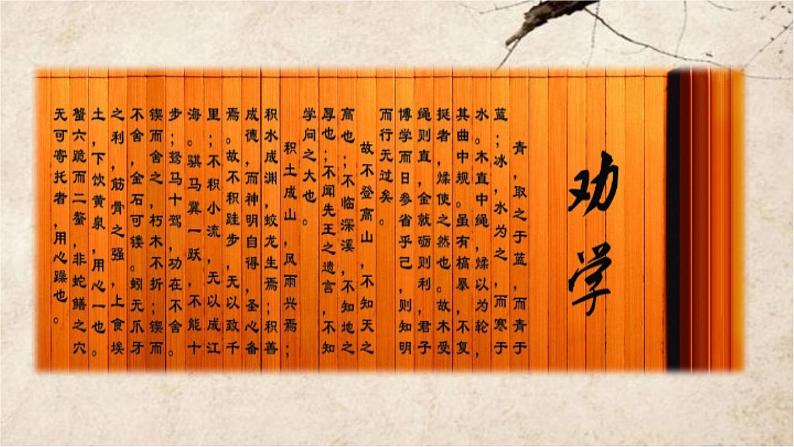 劝学
青，取之于蓝，而青于
蓝；冰，水为之，而寒于
水。木直中绳，煣以为轮，
其曲中规。虽有槁暴，不复
挺者，煣使之然也。故木受
绳则直，金就砺则利，君子
博学而日参省乎己，则知明
而行无过矣。
故不登高山，不知天之
高也；不临深溪，不知地之
厚也；不闻先王之遗言，不知
学问之大也。
积土成山，风雨兴焉；
积水成渊，蛟龙生焉；积善
成德，而神明自得，圣心备
焉。故不积跬步，无以致千
里；不积小流，无以成江
海。骐骥一跃，不能十
步；驽马十驾，功在不舍。
锲而舍之，朽木不折；锲而
不舍，金石可镂。蚓无爪牙
之利，筋骨之强，上食埃
土，下饮黄泉，用心一也。
蟹六跪而二螯，非蛇鳝之穴
无可寄托者，用心躁也。